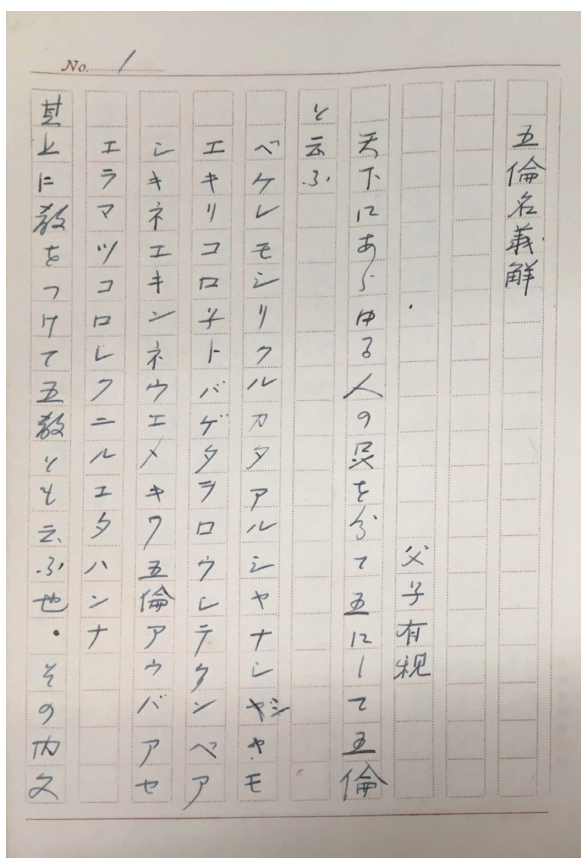 No. 1
五倫名義解
父子有親
天下にあらゆる人の品を分て五にして五倫
と云ふ
ベケレモシリクルカタアルシヤナシヤモ
エキリコロ子トバゲタラロウレテタンベア
シキネエキンネウエメキワ五倫アウバアセ
エラマツコロレクニルエタハンナ
其上に教をつけて五教とも云ふ也・その内父